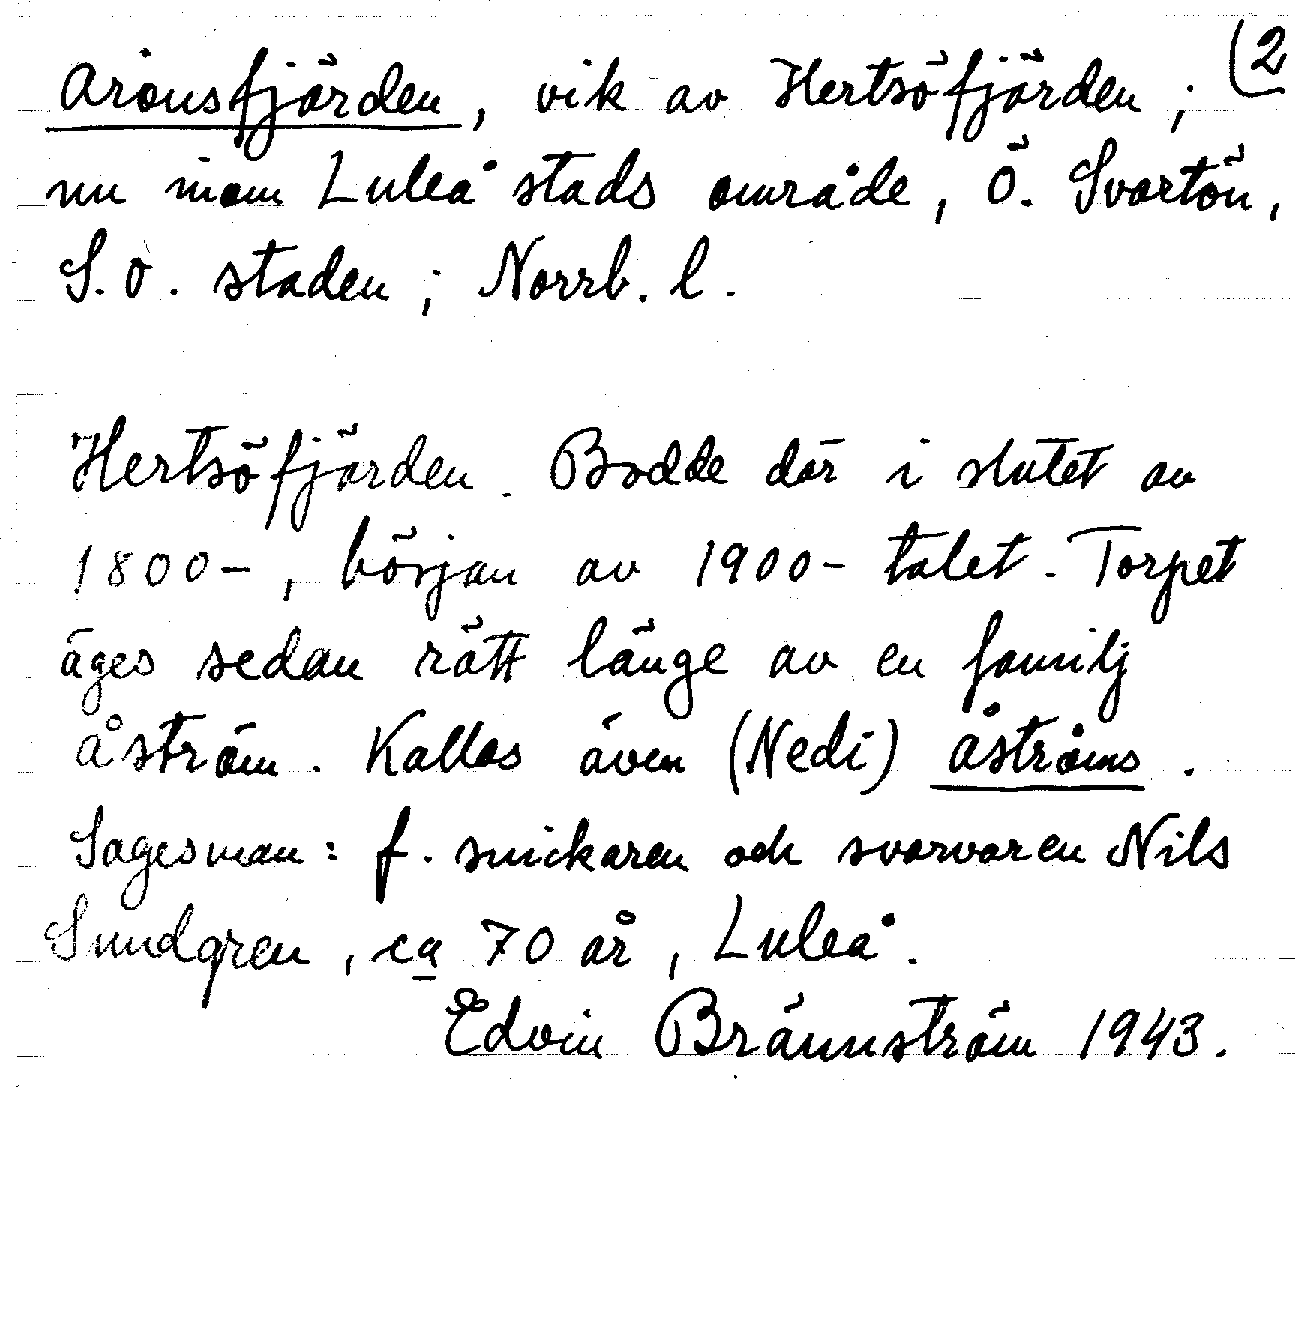 Aronsfjärden, vik av Hertsöfjärden; (2
nu inom Luleå stads område, Ö. Svartön,
S.O. staden; Norrb. l.
Hertsöfjärden. Bodde där i slutet av
1800-, början av 1900-talet. Torpet
äges sedan rätt länge av en familj
Åström. Kallas även (Nedi) Åströms.
Sagesman: f. snickaren och svarvaren Nils
Sundgren, ca 70 år, Luleå.
Edvin Brännström 1943.